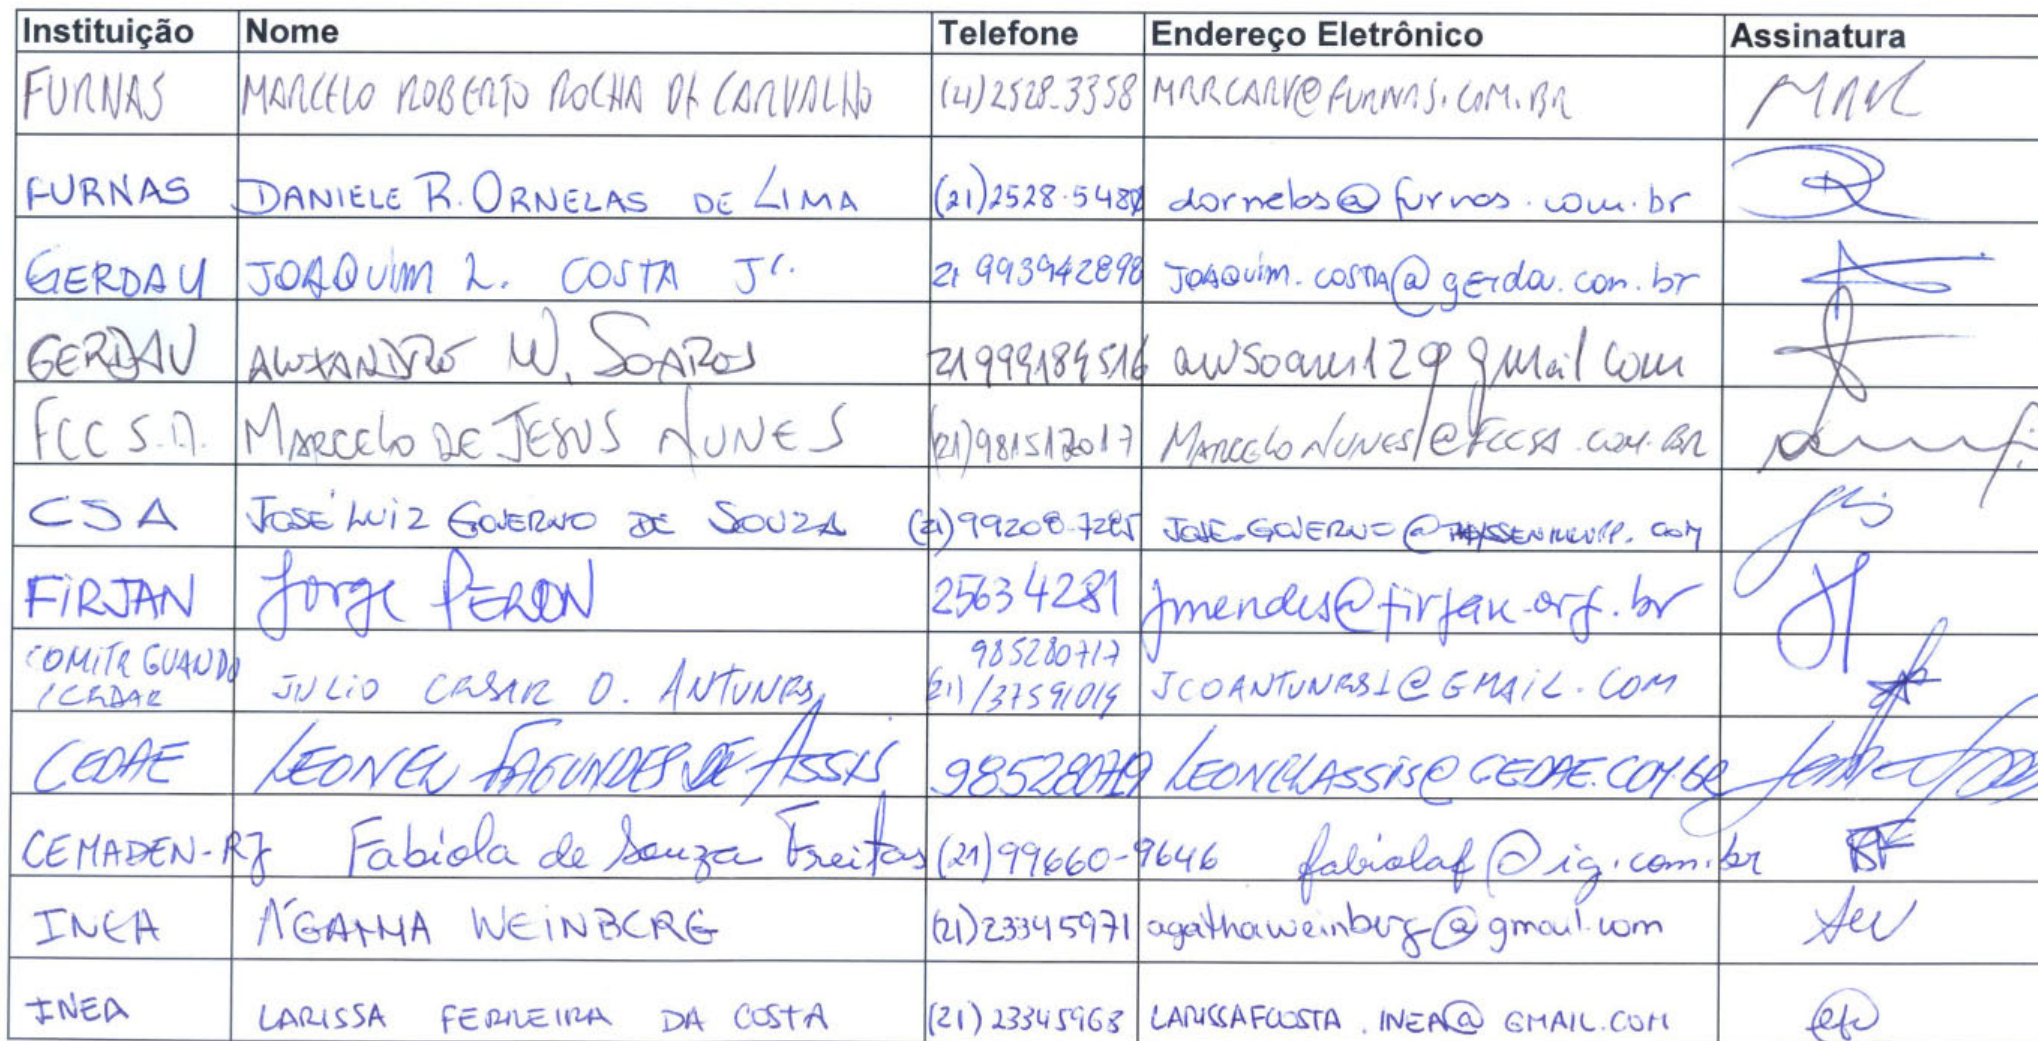 Instituição Nome Telefone Endereço Eletrônico Assinatura
FURNAS MARCELO ROBERTO ROCHA DE CARVALHO (21)2528-3358 MRRCARV@FURNAS.COM.BR
FURNAS DANIELE R. ORNELAS DE LIMA (21)2528-5480 dornelas@furnas.com.br
GERDAU JOAQUIM L. COSTA Jr. 21 993942898 JOAQUIM.COSTA@gerdau.com.br
GERDAU ALEXANDRE W. SOARES 21999189516 awsoares12@gmail com
FCC S.A. MARCELO DE JESUS NUNES (21)981512017 MARCELONUNES@FCCSA.COM.BR
CSA JOSÉ LUIZ GOVERNO DE SOUZA (21)99208-7285 JOSE.GOVERNO@THYSSENKRUPP.COM
FIRJAN Jorge PERON 2563 4281 jmendes@firjan.org.br
COMITE GUANDU 985280717
/CEDAE JULIO CESAR O. ANTUNES (21)/37591019 JCOANTUNES1@GMAIL.COM
CEDAE LEONEL FAGUNDES DE ASSIS LEONELASSIS@CEDAE.COM.BR
CEMADEN-RJ Fabiola de Souza Freitas (21)99660-9646 fabiolaf@ig.com.br
INEA ÁGATHA WEINBERG (21)23345971 agathaweinberg@gmail.com
INEA LARISSA FERREIRA DA COSTA (21)23345963 LARISSAFCOSTA.INEA@GMAIL.COM